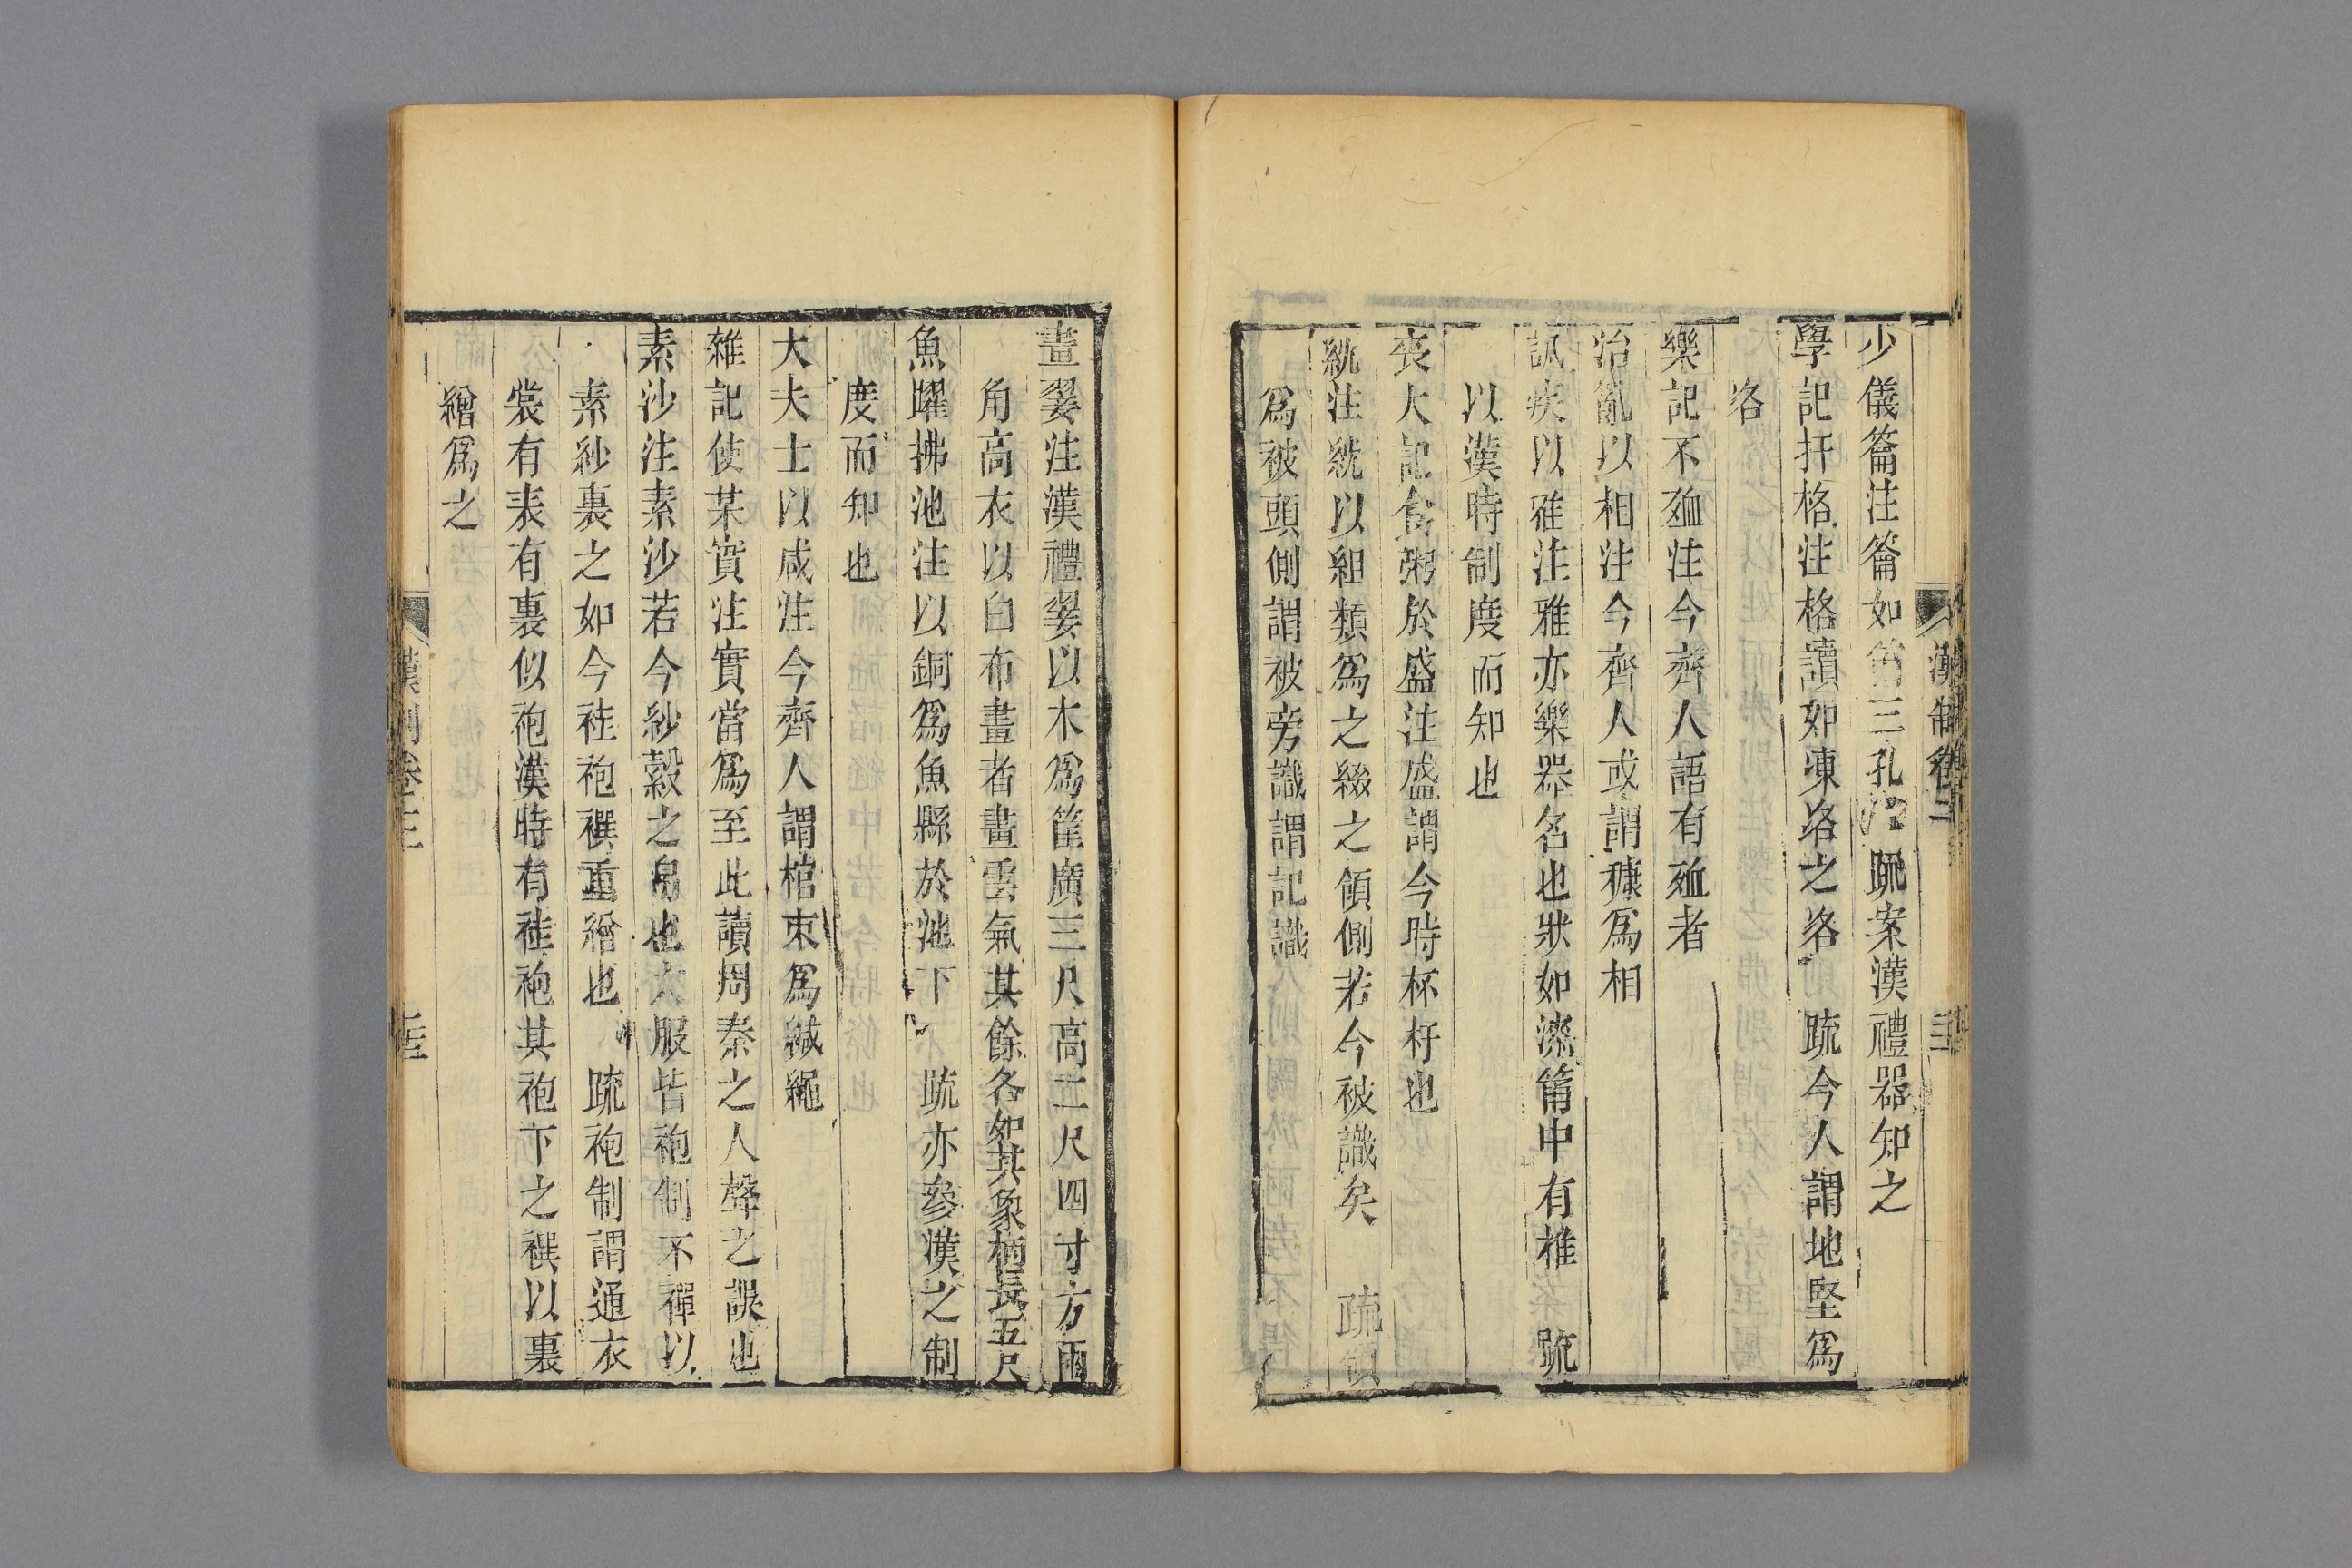 漢制卷三
少儀籥注籥如笛三孔 疏案漢禮器知之
學記扞格注格讀如凍洛之洛 疏今人謂地堅爲
洛
樂記不殈注今齊人語有殈者
治亂以相注今齊人或謂穅爲相
訊疾以雅注雅亦樂器名也狀如漆筩中有椎 疏
以漢時制度而知也
喪大記食粥於盛注盛謂今時杯杅也
紞注紞以組類爲之綴之領側若今被識矣 疏領
爲被頭側謂被旁識謂記識
畫翣注漢禮翣以木爲筐廣三尺高二尺四寸方兩
角高衣以白布畫者畫雲氣其餘各如其象柄長五尺
魚躍拂池注以銅爲魚縣於池下 疏亦參漢之制
度而知也
大夫士以咸注今齊人謂棺束爲緘繩
雜記使某實注實當爲至此讀周秦之人聲之誤也
素沙注素沙若今紗縠之帛也六服皆袍制不襌以
素紗裏之如今袿袍襈重繒也 疏袍制謂通衣
裳有表有裏似袍漢時有袿袍其袍下之襈以裏
繒爲之
漢制卷三